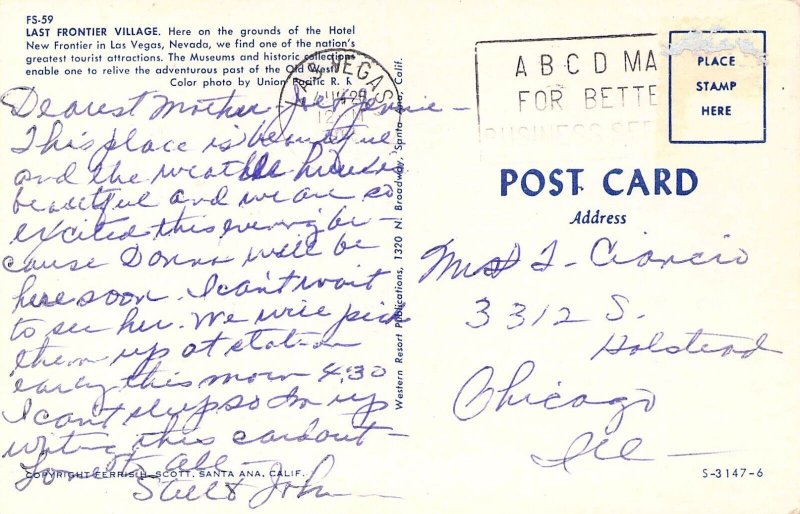 FS-59
LAST FRONTIER VILLAGE. Here on the grounds of the Hotel
New Frontier in Las Vegas, Nevada, we find one of the nation's
greatest tourist attractions. The Museums and historic collections
enable one to relive the adventurous past of the Old West.
Color photo by Union Pacific R. R.
Dearest Mother Joe & Jennie -
This place is beautiful
and the weather
beautiful and we are so
excited this evening be-
cause Donna will be
here soon. I can't wait
to see her. We will pick
them up at station
early this morn 4:30
I can't sleep so Im up
writing this card out -
Love to all -
Stell & John
COPYRIGHT FERRIS H. SCOTT, SANTA ANA, CALIF.
Western Resort Publications, 1320 N. Broadway, Santa Ana, Calif.
LAS VEGAS
A B C D MA
FOR BETTE
BUSINESS SER
PLACE
STAMP
HERE
POST CARD
Address
Mrs J. Ciancio
3312 S.
Halstead
Chicago
Ill -
S-3147-6